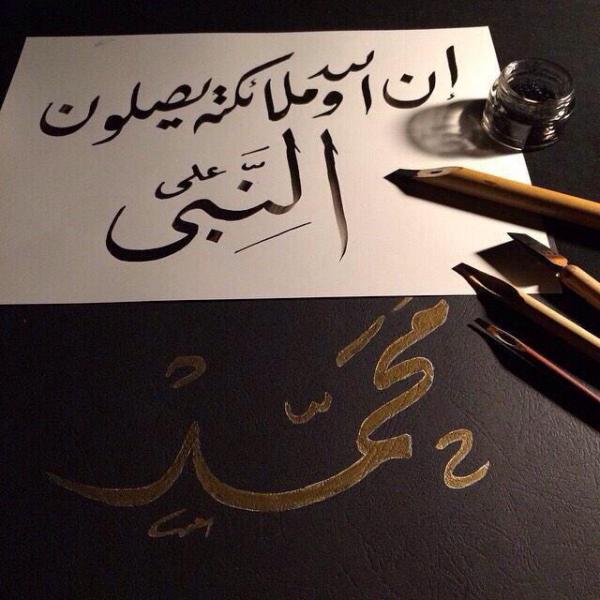 إن الله وملائكته يصلون
على النَّبِي
مُحَمَّد